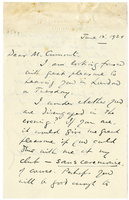 June 12. 1920
Dear M. Cumont,
I am looking forward
with great pleasure to
hearing you in London
on Tuesday.
I wonder whether you
are disengaged in the
evening? If you are,
it would give me great
pleasure if you could
dine with me at my
club — sans cérémonie,
of course. Perhaps you
will be good enough to